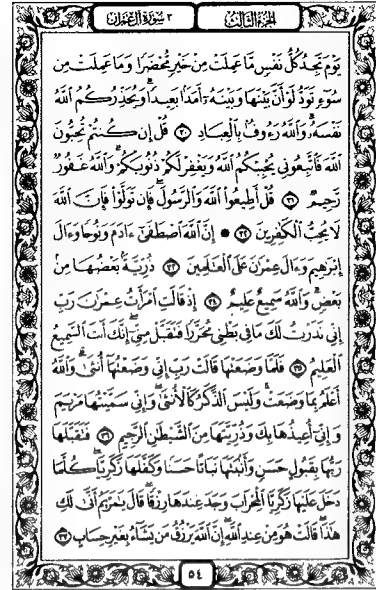 الجزء الثالث
٣ سورة آل عمران
يَوْمَ تَجِدُ كُلُّ نَفْسٍ مَّا عَمِلَتْ مِنْ خَيْرٍ مُّحْضَرًا وَمَا عَمِلَتْ مِن
سُوٓءٍ تَوَدُّ لَوْ أَنَّ بَيْنَهَا وَبَيْنَهُۥٓ أَمَدًۢا بَعِيدًا ۗ وَيُحَذِّرُكُمُ ٱللَّهُ
نَفْسَهُۥ ۗ وَٱللَّهُ رَءُوفٌۢ بِٱلْعِبَادِ ٣٠ قُلْ إِن كُنتُمْ تُحِبُّونَ
ٱللَّهَ فَٱتَّبِعُونِى يُحْبِبْكُمُ ٱللَّهُ وَيَغْفِرْ لَكُمْ ذُنُوبَكُمْ ۗ وَٱللَّهُ غَفُورٌ
رَّحِيمٌ ٣١ قُلْ أَطِيعُوا۟ ٱللَّهَ وَٱلرَّسُولَ ۖ فَإِن تَوَلَّوْا۟ فَإِنَّ ٱللَّهَ
لَا يُحِبُّ ٱلْكَٰفِرِينَ ٣٢ * إِنَّ ٱللَّهَ ٱصْطَفَىٰٓ ءَادَمَ وَنُوحًا وَءَالَ
إِبْرَٰهِيمَ وَءَالَ عِمْرَٰنَ عَلَى ٱلْعَٰلَمِينَ ٣٣ ذُرِّيَّةًۢ بَعْضُهَا مِنۢ
بَعْضٍ ۗ وَٱللَّهُ سَمِيعٌ عَلِيمٌ ٣٤ إِذْ قَالَتِ ٱمْرَأَتُ عِمْرَٰنَ رَبِّ
إِنِّى نَذَرْتُ لَكَ مَا فِى بَطْنِى مُحَرَّرًا فَتَقَبَّلْ مِنِّىٓ ۖ إِنَّكَ أَنتَ ٱلسَّمِيعُ
ٱلْعَلِيمُ ٣٥ فَلَمَّا وَضَعَتْهَا قَالَتْ رَبِّ إِنِّى وَضَعْتُهَآ أُنثَىٰ وَٱللَّهُ
أَعْلَمُ بِمَا وَضَعَتْ وَلَيْسَ ٱلذَّكَرُ كَٱلْأُنثَىٰ ۖ وَإِنِّى سَمَّيْتُهَا مَرْيَمَ
وَإِنِّىٓ أُعِيذُهَا بِكَ وَذُرِّيَّتَهَا مِنَ ٱلشَّيْطَٰنِ ٱلرَّجِيمِ ٣٦ فَتَقَبَّلَهَا
رَبُّهَا بِقَبُولٍ حَسَنٍ وَأَنۢبَتَهَا نَبَاتًا حَسَنًا وَكَفَّلَهَا زَكَرِيَّا ۖ كُلَّمَا
دَخَلَ عَلَيْهَا زَكَرِيَّا ٱلْمِحْرَابَ وَجَدَ عِندَهَا رِزْقًا ۖ قَالَ يَٰمَرْيَمُ أَنَّىٰ لَكِ
هَٰذَا ۖ قَالَتْ هُوَ مِنْ عِندِ ٱللَّهِ ۖ إِنَّ ٱللَّهَ يَرْزُقُ مَن يَشَآءُ بِغَيْرِ حِسَابٍ ٣٧
٥٤